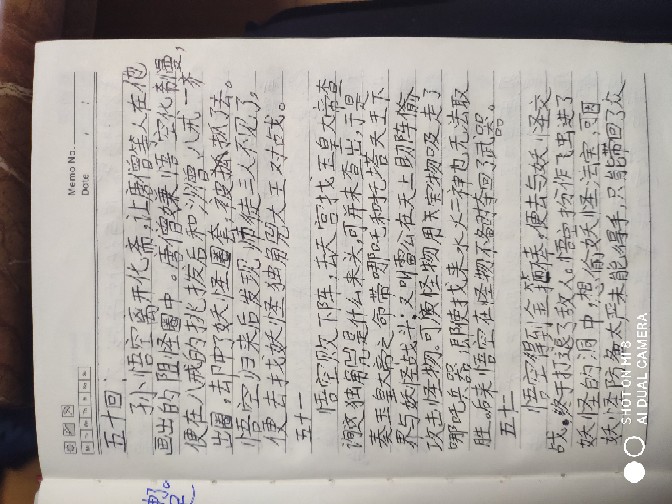 Memo No.
Date / /
五十回
孙悟空离开化斋,让唐僧等人在他
画出的阻怪圈中。唐僧嫌悟空化斋慢,
便在八戒的挑拨后和沙僧,八戒一齐
出圈,去中了妖怪圈套,被抓。
悟空归来后发现师徒三人不见了,
便去找妖怪独角兕大王对战。
五十一
悟空败下阵,天宫找玉皇大帝查
询这独角兕是什么来头,可并未查出,于是
奏玉皇大帝之命带哪吒和托塔天王下
界与妖怪战斗,又叫雷公在天上助阵偷
攻击怪物。可怪物用宝物吸走了
哪吒兵器,即使找来水火二神也无法取
胜。后来悟空在怪物不备时夺回了武器。
五十二
悟空得到金箍棒,便去与妖怪交
战。终于打退了敌人。悟空扮作飞虫进了
妖怪的洞中,想偷妖怪法宝,可因
妖怪防备太严未能得手,只能带回了众
SHOT ON MI 8
AI DUAL CAMERA